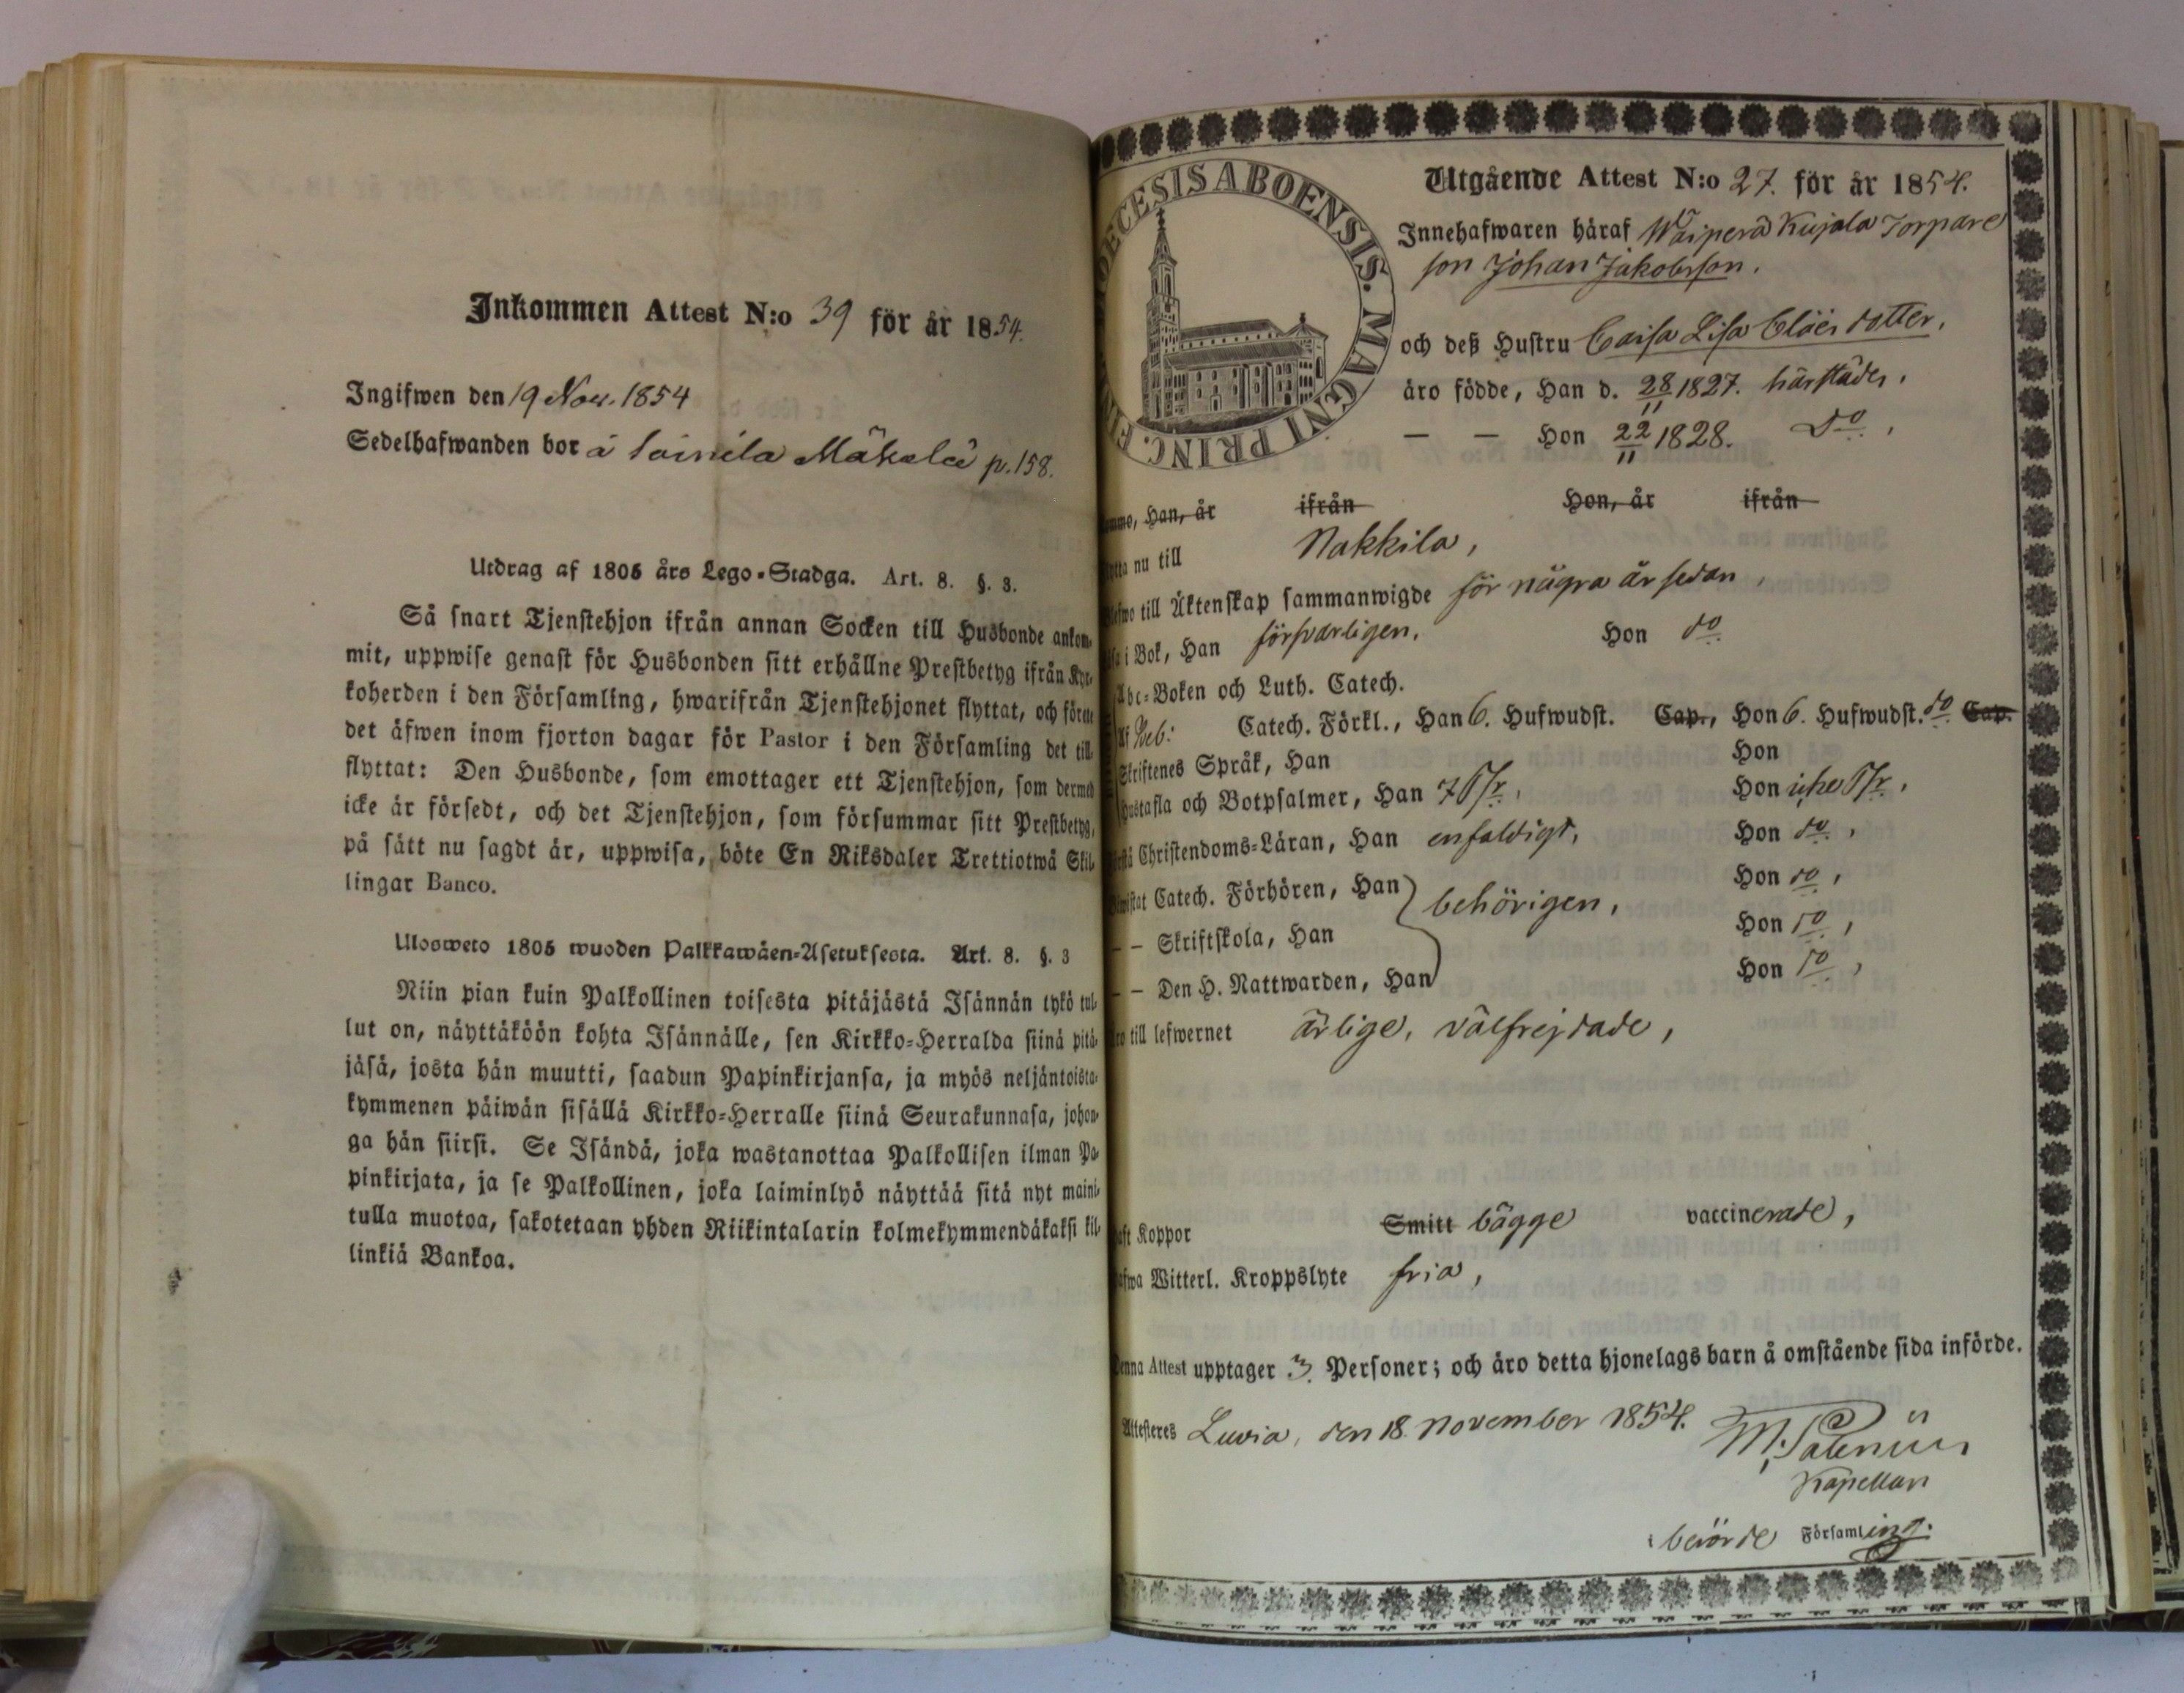 Inkommen Attest N:o 39 för år 1854.
Ingifwen den 19 Nov. 1854
Sedelhafwanden bor å Soinila Mäkelä p. 158.
Utdrag af 1805 års Lego-Stadga. Art. 8. §. 3.
Så snart Tjenstehjon ifrån annan Socken till Husbonde ankom-
mit, uppwise genast för Husbonden sitt erhållne Prestbetyg ifrån Kyr-
koherden i den Församling, hwarifrån Tjenstehjonet flyttat, och förete
det äfwen inom fjorton dagar för Pastor i den Församling det till-
flyttat: Den Husbonde, som emottager ett Tjenstehjon, som dermed
icke är försedt, och det Tjenstehjon, som försummar sitt Prestbetyg,
på sätt nu sagdt är, uppwisa, böte En Riksdaler Trettiotwå Skil-
lingar Banco.
Ulosweto 1805 wuoden Palkkawäen-Asetuksesta. Art. 8. §. 3
Niin pian kuin Palkollinen toisesta pitäjästä Isännän tykö tul-
lut on, näyttäköön kohta Isännälle, sen Kirkko-Herralda siinä pitä-
jäsä, josta hän muutti, saadun Papinkirjansa, ja myös neljäntoista-
kymmenen päiwän sisällä Kirkko-Herralle siinä Seurakunnasa, johon-
ga hän siirsi. Se Isändä, joka wastanottaa Palkollisen ilman Pa-
pinkirjata, ja se Palkollinen, joka laiminlyö näyttää sitä nyt maini-
tulla muotoa, sakotetaan yhden Riikintalarin kolmekymmendäkaksi kil-
linkiä Bankoa.
DIOECESIS ABOENSIS. MAGNI PRINC. FIN
Utgående Attest N:o 27. för år 1854.
Innehafwaren häraf Waiperä Kujala Torpare
son Johan Jakobsson.
och deß Hustru Caisa Lisa Cläesdotter,
äro födde, Han d. 28/11 1827. härstädes,
— — Hon 22/11 1828. do,
Han, år ifrån Hon, år ifrån
nu till Nakkila,
till Äktenskap sammanwigde för några år sedan,
i Bok, Han försvarligen, Hon do
Abc-Boken och Luth. Catech.
Af Neb: Catech. Förkl., Han 6. Hufwudst. Cap., Hon 6. Hufwudst. do Cap.
Skriftenes Språk, Han Hon
Hustafla och Botpsalmer, Han 7 Psr, Hon icke Psr,
Christendoms-Läran, Han enfaldigt, Hon do,
Catech. Förhören, Han behörigen, Hon do,
— — Skriftskola, Han Hon do,
— — Den H. Nattwarden, Han Hon do,
till lefwernet ärlige, välfrejdade,
Koppor Smitt bägge vaccinerade,
Witterl. Kroppslyte fria,
Denna Attest upptager 3. Personer; och äro detta hjonelags barn å omstående sida införde.
Attesteres Luvia, den 18. November 1854. M. Salenius
Kapellan
i berörde Församling.